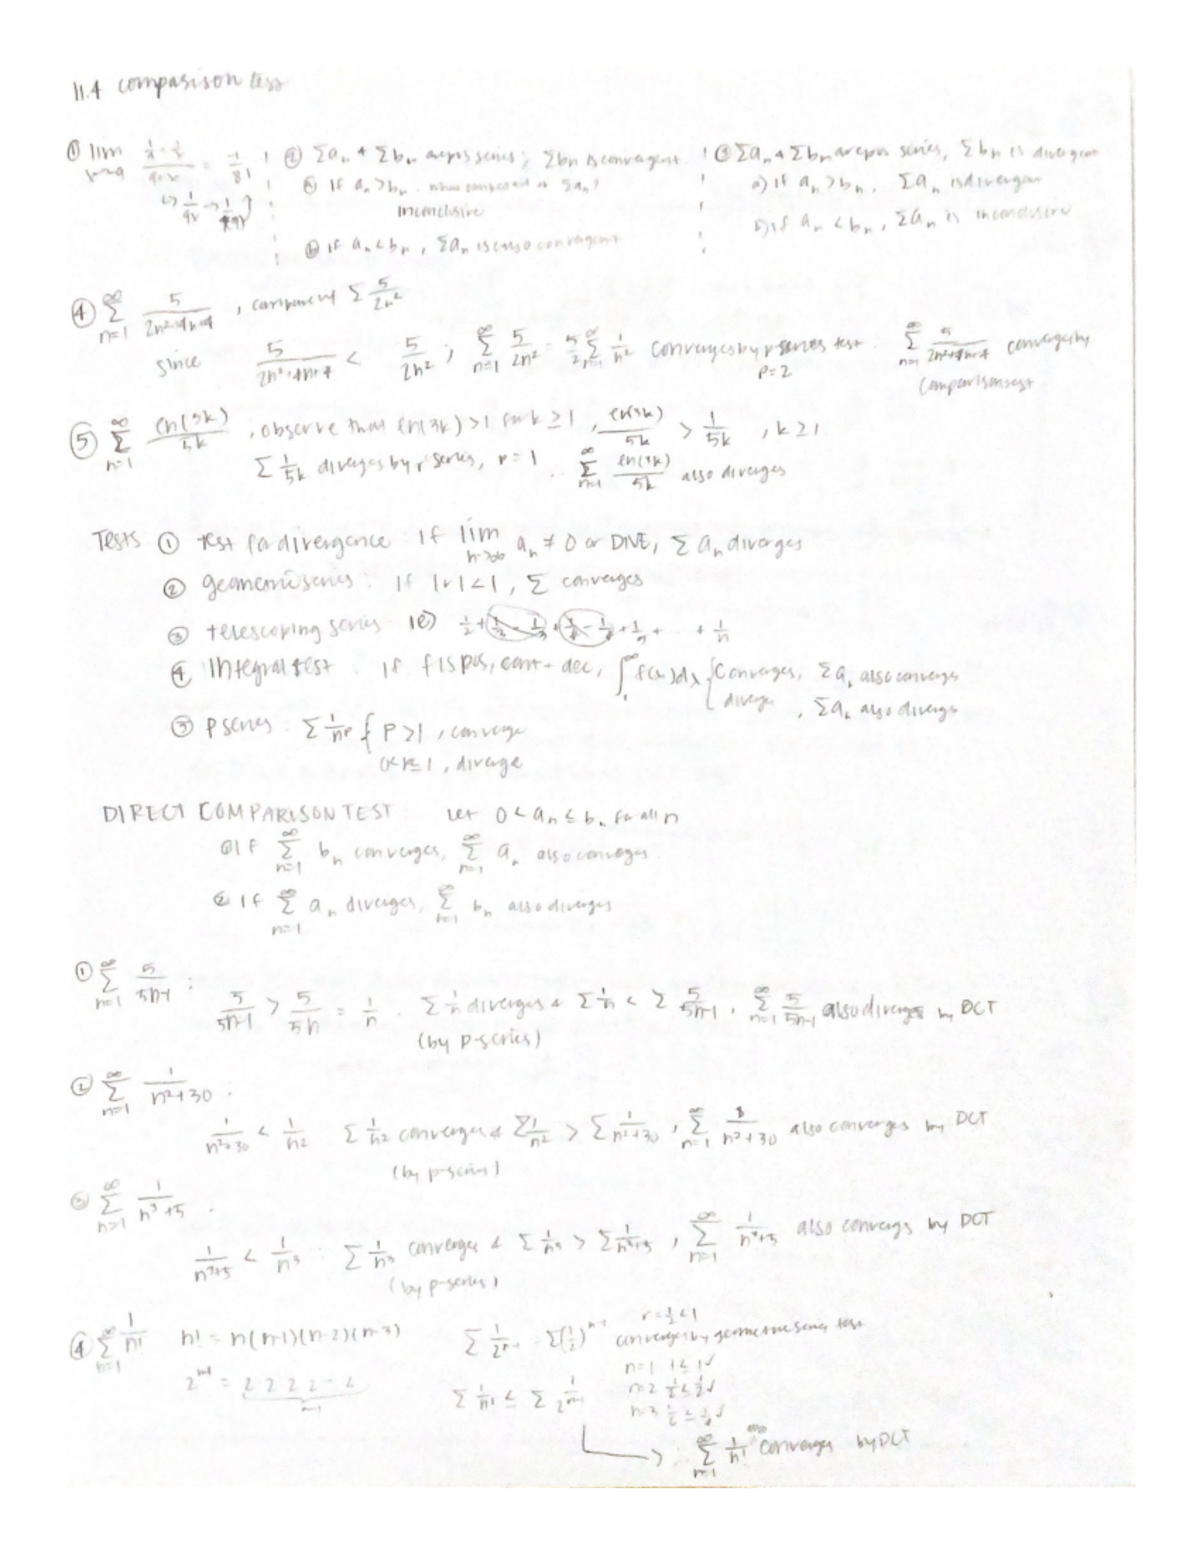 11.4 comparison test
① lim = -1/8
② Σaₙ & Σbₙ are pos series; Σbₙ is convergent.
ⓐ If aₙ > bₙ, Σaₙ?
inconclusive
ⓑ if aₙ < bₙ, Σaₙ is also convergent
③ Σaₙ & Σbₙ are pos series, Σbₙ is divergent
a) if aₙ > bₙ, Σaₙ is divergent
b) if aₙ < bₙ, Σaₙ is inconclusive
④ ∞Σn=1 5/(2n²+4n+4), Σ 5/2n²
since 5/(2n²+4n+4) < 5/2n²; ∞Σn=1 5/2n² = 5/2 ∞Σn=1 1/n² converges by p series test p=2 ∞Σn=1 5/(2n²+4n+4) converges by comparison test
⑤ ∞Σn=1 ln(3k)/5k, observe that ln(3k) > 1 for k ≥ 1, ln(3k)/5k > 1/5k, k ≥ 1
Σ 1/5k diverges by p series, p = 1 ∞Σn=1 ln(3k)/5k also diverges
Tests ① test for divergence: if lim n→∞ aₙ ≠ 0 or DNE, Σ aₙ diverges
② geometric series: if |r| < 1, Σ converges
③ telescoping series
④ integral test: if f is pos, cont + dec, ∫ f(x)dx { converges, Σaₙ also converges
diverge, Σaₙ also diverges
⑤ p series: Σ 1/nᵖ { p > 1, converge
, diverge
DIRECT COMPARISON TEST Let 0 < aₙ ≤ bₙ for all n
① If ∞Σn=1 bₙ converges, ∞Σn=1 aₙ also converges.
② If ∞Σn=1 aₙ diverges, ∞Σn=1 bₙ also diverges
① ∞Σn=1 5/(5n-1):
5/(5n-1) > 5/5n = 1/n. Σ 1/n diverges & Σ 1/n < Σ 5/(5n-1), ∞Σn=1 5/(5n-1) also diverges by DCT
(by p-series)
② ∞Σn=1 1/(n²+30).
1/(n²+30) < 1/n² Σ 1/n² converges & Σ 1/n² > Σ 1/(n²+30), ∞Σn=1 1/(n²+30) also converges by DCT
(by p-series)
③ ∞Σn=1 1/(n³+5).
1/(n³+5) < 1/n³: Σ 1/n³ converges & Σ 1/n³ > Σ 1/(n³+5), ∞Σn=1 1/(n³+5) also converges by DCT
(by p-series)
④ ∞Σn=1 1/n! n! = n(n-1)(n-2)(n-3) Σ 1/2ⁿ⁻¹ = Σ(1/2)ⁿ⁻¹ r=1/2<1
converges by geometric series test
2ⁿ⁻¹ = 2 2 2 2 - 2
n-1
n=1 1≤1✓
n=2 1/2≤1/2✓
Σ 1/n! ≤ Σ 1/2ⁿ⁻¹
∴ ∞Σn=1 1/n! also converges by DCT